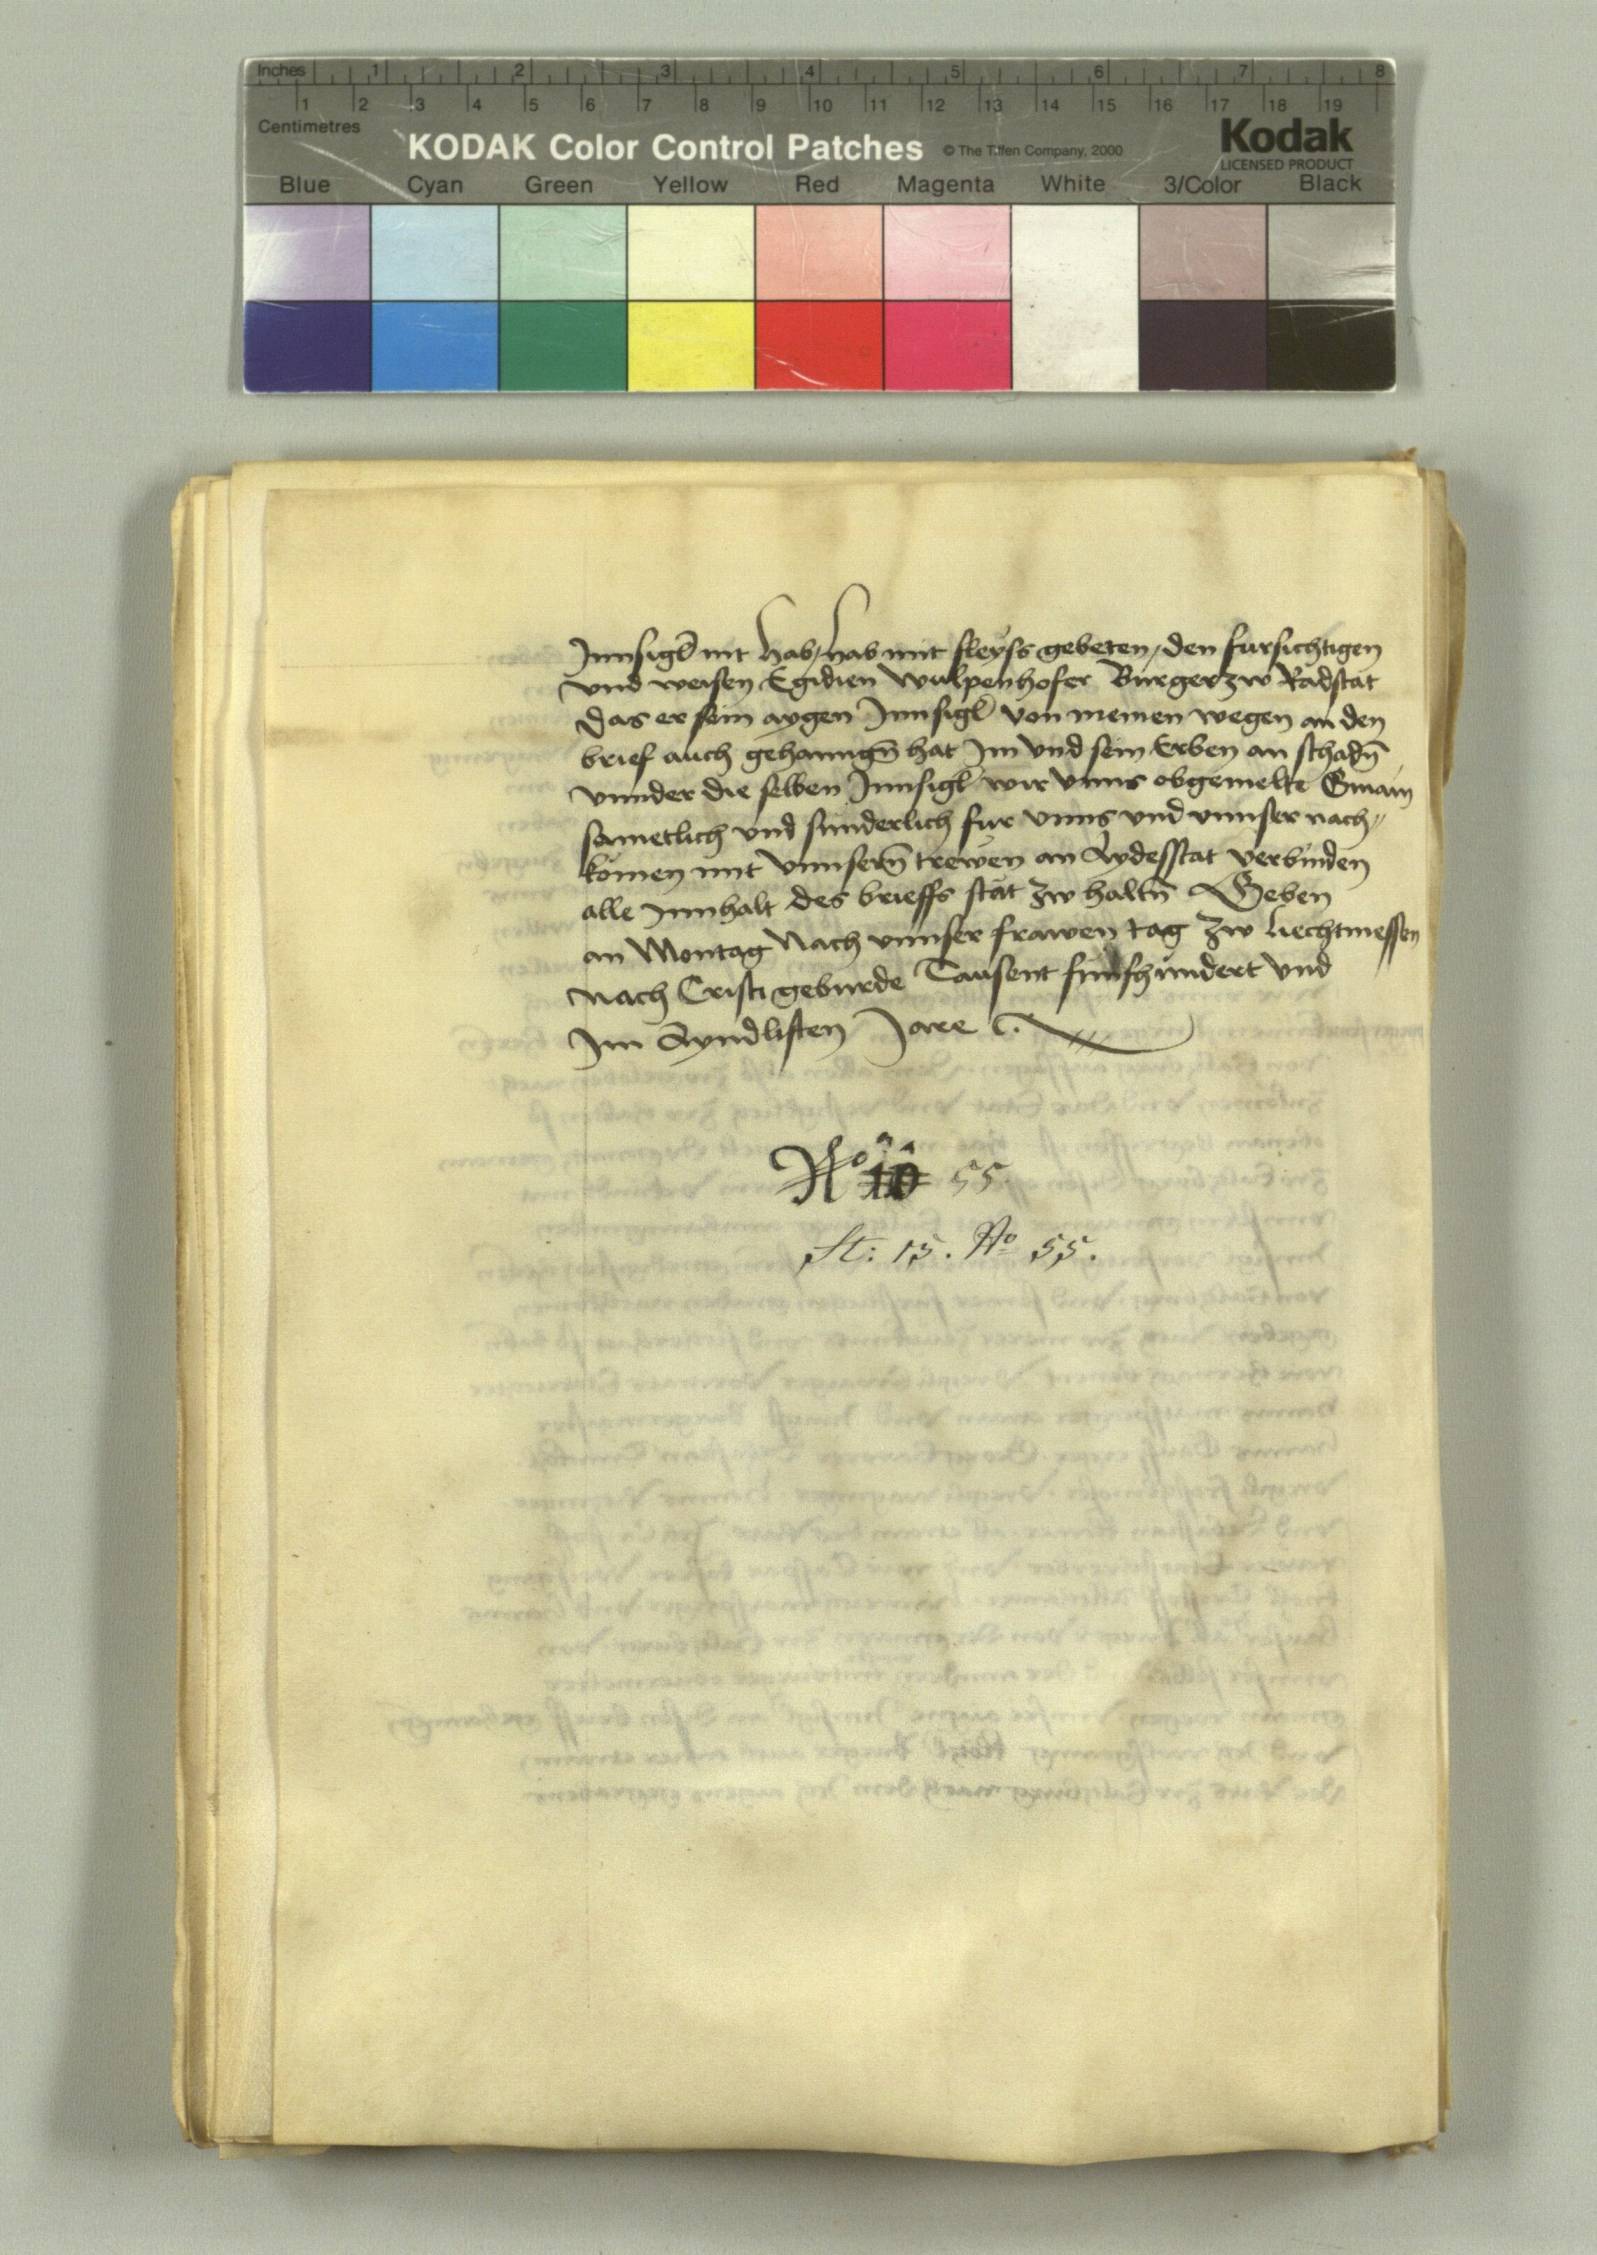 Inches 1 2 3 4 5 6 7 8
1 2 3 4 5 6 7 8 9 10 11 12 13 14 15 16 17 18 19
Centimetres
KODAK Color Control Patches © The Tiffen Company, 2000 Kodak
LICENSED PRODUCT
Blue Cyan Green Yellow Red Magenta White 3/Color Black
Innsigl nit hab / hab mit fleyss gebeten / den fursichtigen
vnd weisen Egidien Wulpenhofer Burger zw Radstat
das er sein aygen Innsigl von meinen wegen an den
brief auch gehanngñ hat Im vnd sein Erben an schadñ
vnnder die selben Innsigl wir vnns obgemelte Gmain
sametlich vnd sunderlich fur vnns vnd vnnser nach„
komen mit vnnserñ trewen an Aydesstat verbinden
alle Innhalt des brieffs stät zw haltñ Geben
an Montag Nach vnnser frawen tag zw liechtmessen
Nach Cristi geburde Tausent funfhundert vnd
Im Ayndlisten Jare
No 10 55
St: 15. No 55.